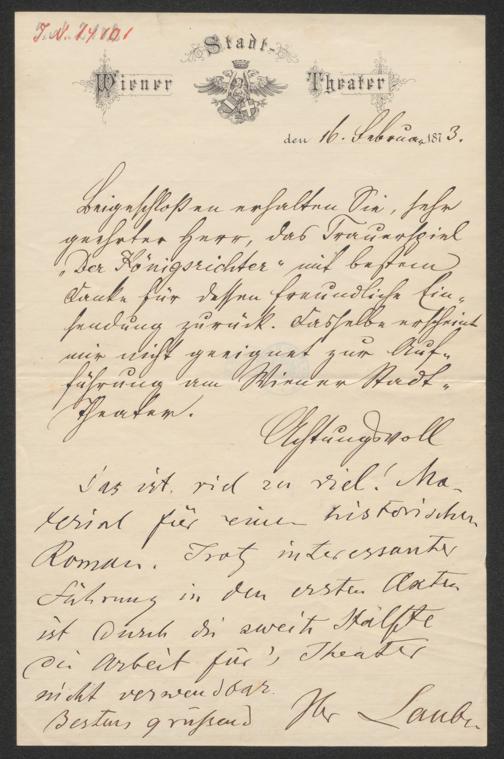 J.N. 74101
Wiener Stadt-Theater
den 16. Februar 1873.
Beigeschloßen erhalten Sie, sehr
geehrter Herr, das Trauerspiel
„Der Königsrichter“ mit bestem
Danke für dessen freundliche Ein-
sendung zurück. Dasselbe erscheint
mir nicht geeignet zur Auf-
führung am Wiener Stadt-
Theater.
Achtungsvoll
Das ist viel zu viel! Ma-
terial für einen historischen
Roman. Trotz interessanter
Führung in den ersten Akten
ist durch die zweite Hälfte
die Arbeit für's Theater
nicht verwendbar.
Bestens grüssend Ihr Laube